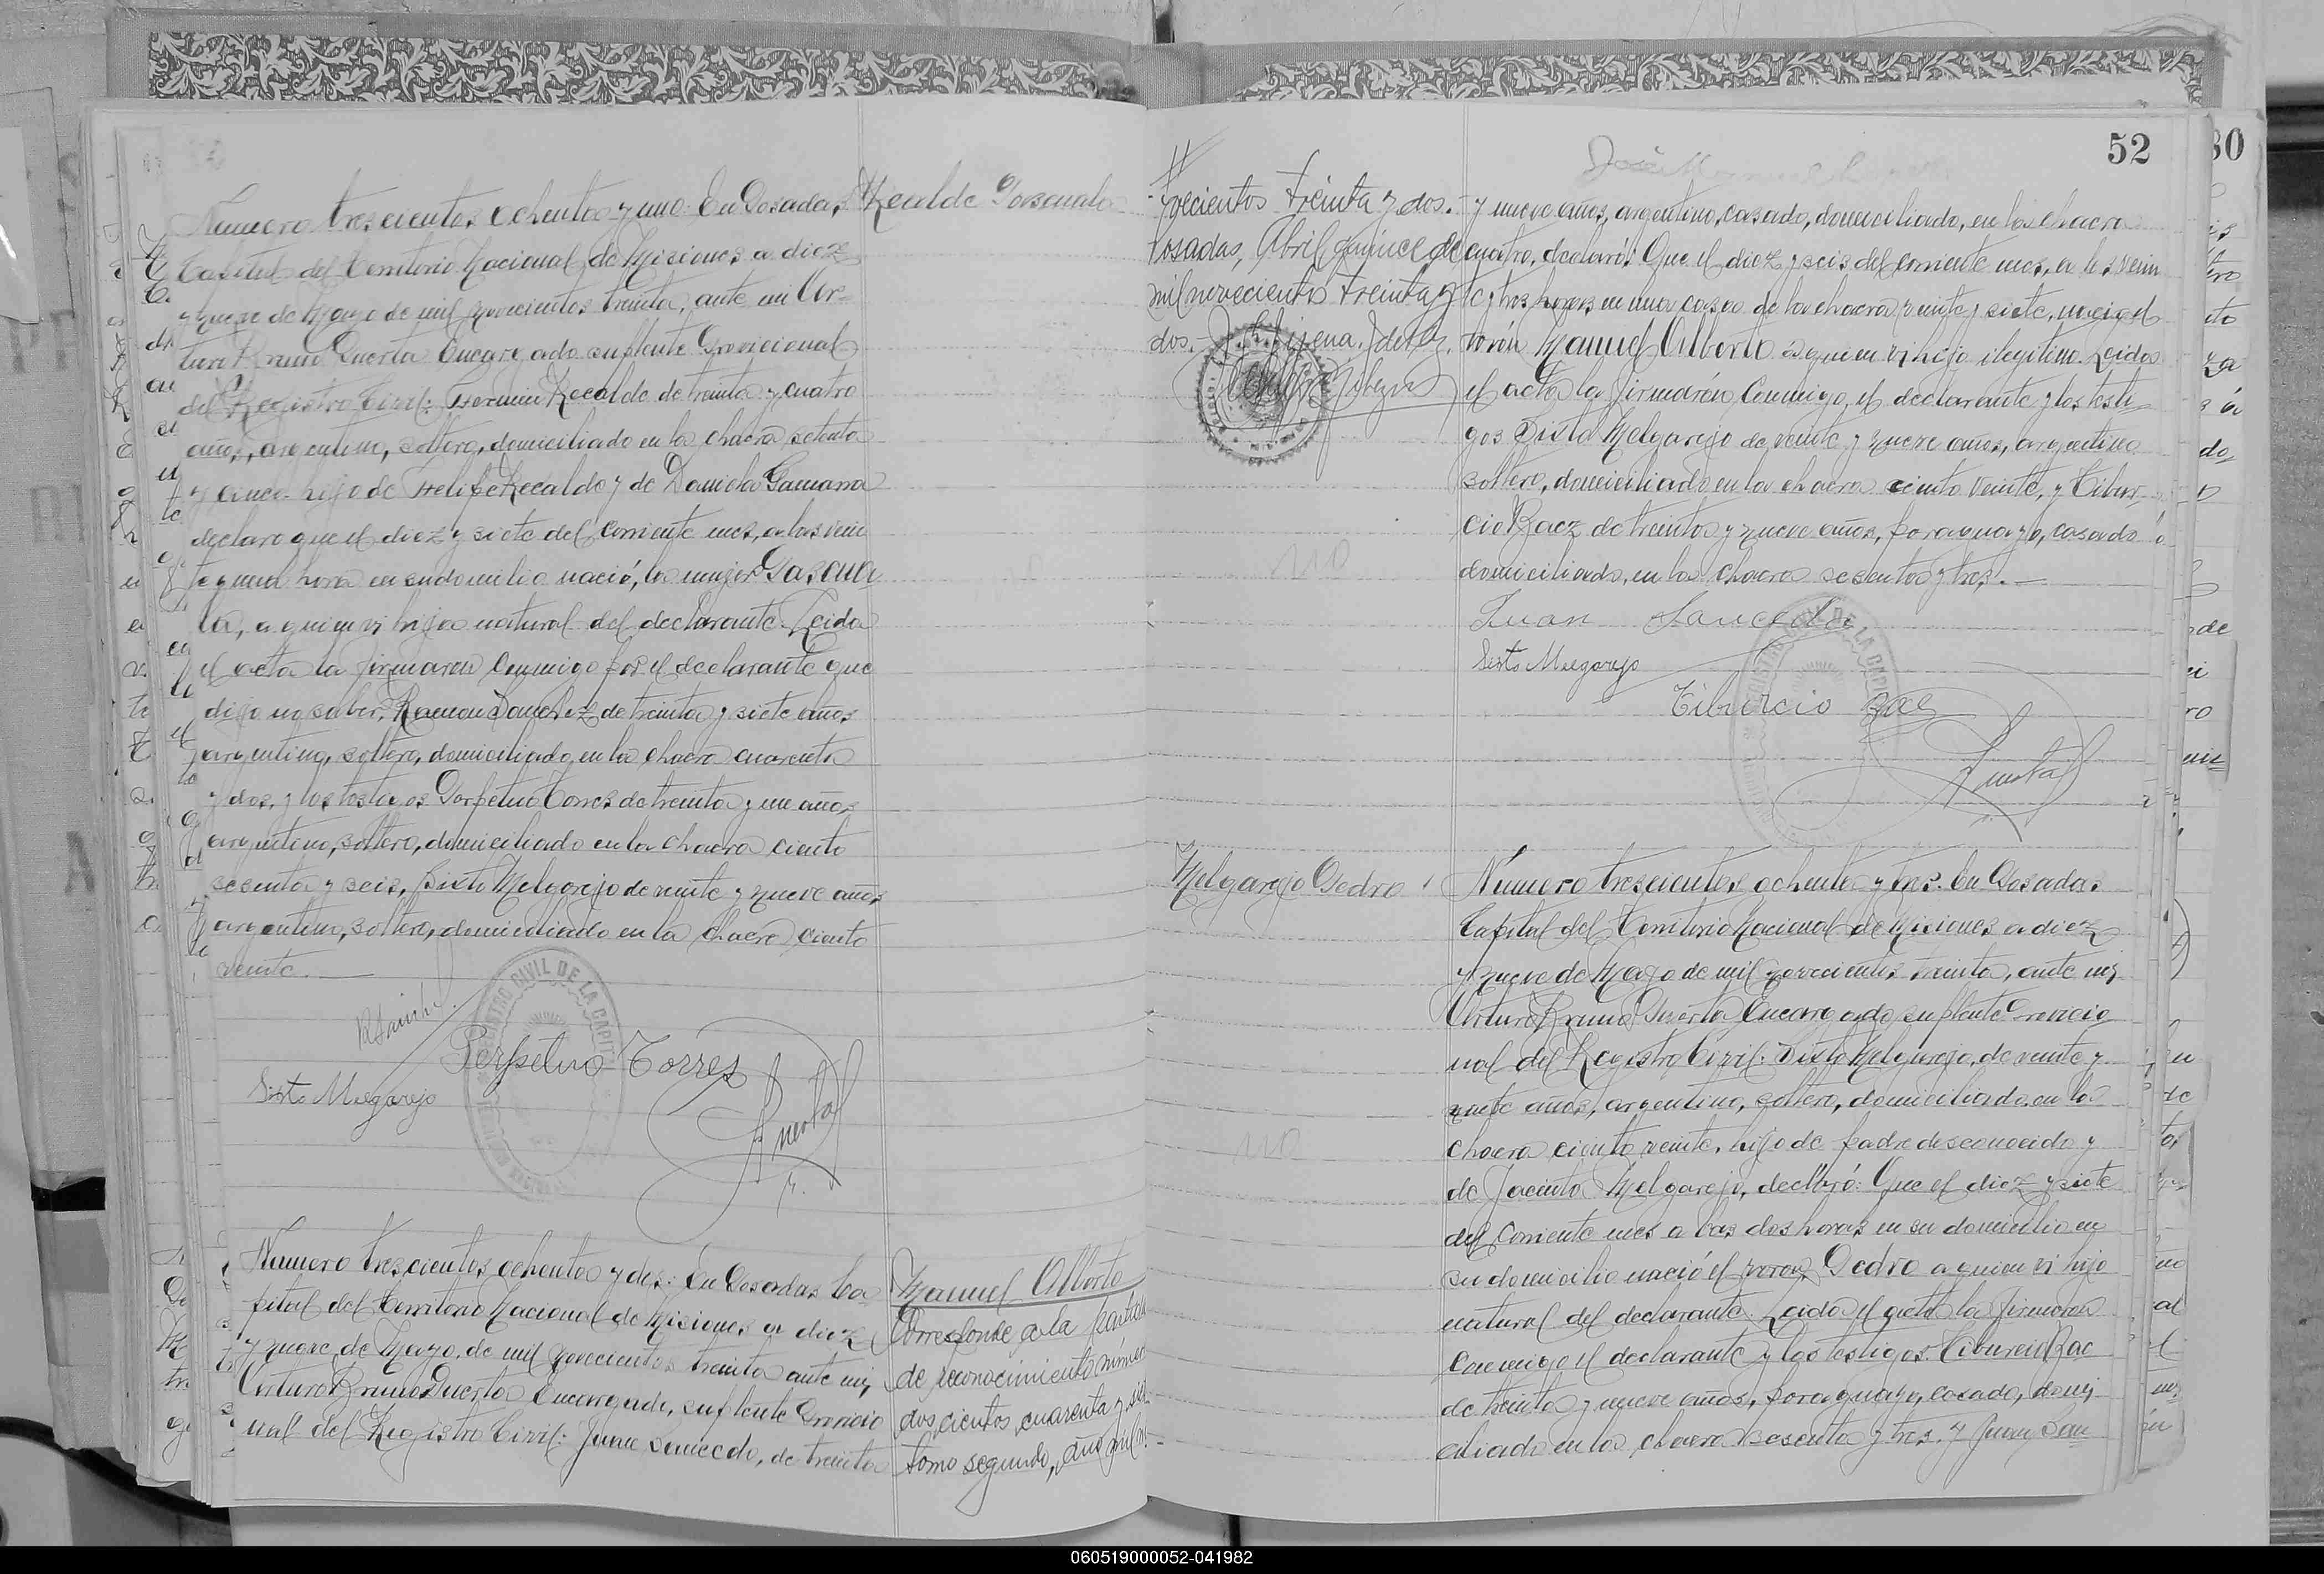 Recalde Pascuala
Número trescientos ochenta y uno. En Posadas,
Capital del Territorio Nacional de Misiones a diez
y nueve de Mayo de mil novecientos treinta, ante mi Ar-
turo Bruno Puerta Encargado suplente Provicional
del Registro Civil: Fermin Recalde de treinta y cuatro
años, argentino, soltero, domiciliado en la chacra setenta
y cinco. hijo de Felipe Recalde y de Daniela Gamarra
declaro que el diez y siete del corriente mes, a las vein
te y una hora en su domicilio nació, la mujer Pascua
la, a quien vi hija natural del declarante. Leida
el acta la firmaron conmigo por el declarante que
dijo no saber, Ramon Sanchez de treinta y siete años
argentino, soltero, domiciliado en la chacra cuarenta
y dos, y los testigos Perpetuo Torres de treinta y un años
argentino, soltero, domiciliado en la chacra ciento
sesenta y seis, Sixto Melgarejo de veinte y nueve años
argentino, soltero, domiciliado en la chacra ciento
veinte.
REGISTRO CIVIL DE LA CAPITAL
Perpetuo Torres
Sixto Melgarejo
Número trescientos ochenta y dos: En Posadas Ca
pital del Territorio Nacional de Misiones a diez
y nueve de Mayo de mil novecientos treinta ante mi,
Arturo Bruno Puerta Encargado, suplente Provicio
nal del Registro Civil: Juan Saucedo, de treinta
Manuel Alberto
Corresponde a la partida
de reconocimiento número
doscientos cuarenta y sie-
tomo segundo, año mil no-
52
trecientos treinta y dos.-
Posadas, Abril quince de
mil novecientos treinta y
dos.-
y nueve años, argentino, casado, domiciliado, en la chacra
cuatro, declaró: Que el diez y seis del corriente mes, a las vein
te y tres horas en una casa de la chacra veinte y siete, nació el
varón Manuel Alberto a quien vi hijo ilegitimo. Leida
el acta la firmarón conmigo, el declarante y los testi
gos Sixto Melgarejo de veinte y nueve años, argentino
soltero, domiciliado en la chacra ciento veinte, y Tibur-
cio Baez de treinta y nueve años, paraguayo, casado
domiciliado, en la chacra sesenta y tres.
Juan Saucedo
Sixto Melgarejo
Tiburcio Baes
Melgarejo Pedro
Número trescientos ochenta y tres. En Posadas
Capital del Territorio Nacional de Misiones a diez
y nueve de Mayo de mil novecientos treinta, ante mi,
Arturo Bruno Puerta Encargado suplente Provicio
nal del Registro Civil: Sixto Melgarejo, de veinte y
años, argentino, soltero, domiciliado, en la
chacra ciento veinte, hijo de padre desconocido y
de Jacinta Melgarejo, declaró: Que el diez y siete
del corriente mes a las dos horas en su domicilio en
su domicilio nació el varon, Pedro a quien vi hijo
natural del declarante. Leida el acta la firmaron
conmigo el declarante y los testigos Tiburcio Bae
de treinta y nueve años, paraguayo, casado, domi-
ciliado en la chacra sesenta y tres. y Juan Sau
060519000052-041982